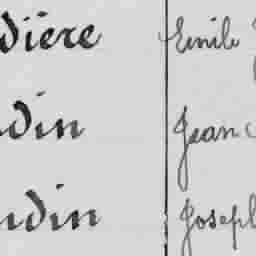 diere Emile
din Jean
udin Joseph